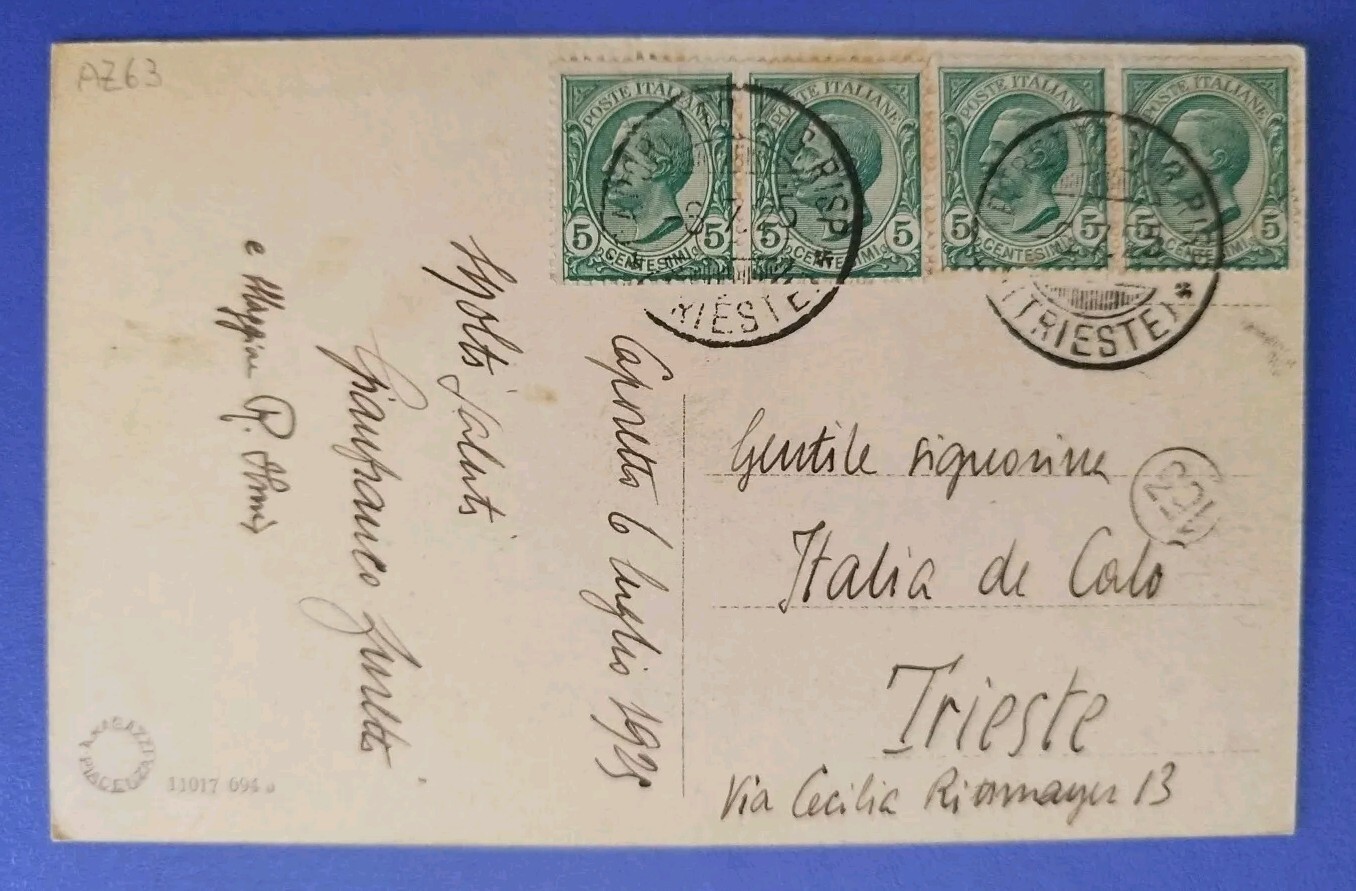 AZ63
POSTE ITALIANE
5 CENTESIMI 5
POSTE ITALIANE
5 CENTESIMI 5
POSTE ITALIANE
5 CENTESIMI 5
POSTE ITALIANE
5 CENTESIMI 5
(TRIESTE)
(TRIESTE)
Caporetto 6 luglio 1925
Molti saluti
Gianfranco
e
Gentile signorina
Italia de Calo
Trieste
Via Cecilia Rittmayer 13
A. RAGAZZI PIACENZA
11017 694